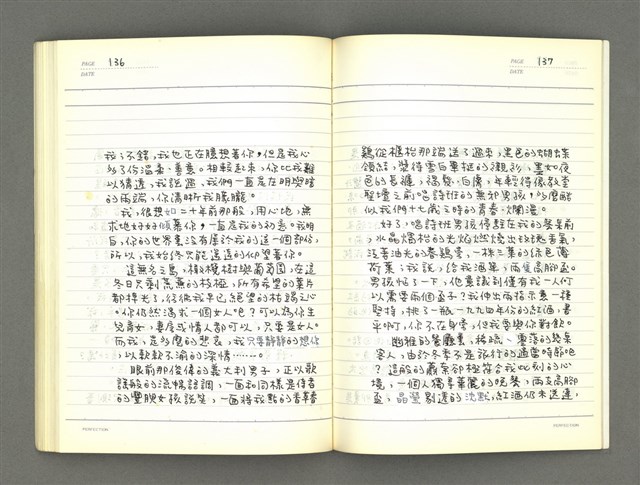 PAGE 136
DATE
我:不錯,我也正在臆想著你,但是我心
邪了份溫柔、善意。相較起來,你比我難
以猜透,我說過,我們一直是在明與暗
的兩端,你清晰我朦朧。
我,很想如二十年前那般,用心地、無
求地好好傾慕你,一直是我的初意。我明
白,你的世界裏沒有屬於我的這一個部份,
所以,我始終只能遙遠的仰望著你。
這無名之島,橄欖樹與葡萄園,在這
冬日只剩荒蕪的枝椏,所有希望的葉片
都掉光了,給彼我早已絕望的枯竭之心。
你仍然渴求一個女人吧?可以為你生
兒育女,妻管或情人都可以,只要是女人。
而我,是多麼的悲哀,我只要靜靜的想你
,以款款不渝的深情……。
眼前那俊偉的義大利男子,正以歌
謠般的流暢語調,一面和同樣是侍者
的豐腴女孩說笑,一面將我點的香草春
PERFECTION
PAGE 137
DATE
雞從櫃枱那端送了過來,黑色的蝴蝶
領結,漿得雪白畢挺的襯衫,墨如夜
色的長褲,佟髮、白膚,年輕得像教堂
聖壇之前唱詩班的無邪男孩,多麼酷
似我們十七歲之時的青春、爛漫。
好了,唱詩班男孩停駐在我的餐桌前
,水晶燭枱的光焰燃燒出玫瑰香氣,
泛著油光的春雞旁,一株三葉的綠色薄
荷葉;我說,給我酒單,兩隻高腳盃。
男孩怔了一下,他意識到僅有我一人何
以需要兩個盃子?我伸出兩指示意一種
堅持,挑了瓶一九九四年份的紅酒,書
平啊,你不在身旁,但我要與你對飲。
幽雅的餐廳裏,稀疏、零落的幾桌
客人,由於冬季不是旅行的適當時節吧
?這般的蕭索卻極符合我此刻的心
境,一個人獨享華麗的晚餐,兩支高腳
盃,晶瑩剔透的沈默,紅酒仍未送達,
PERFECTION